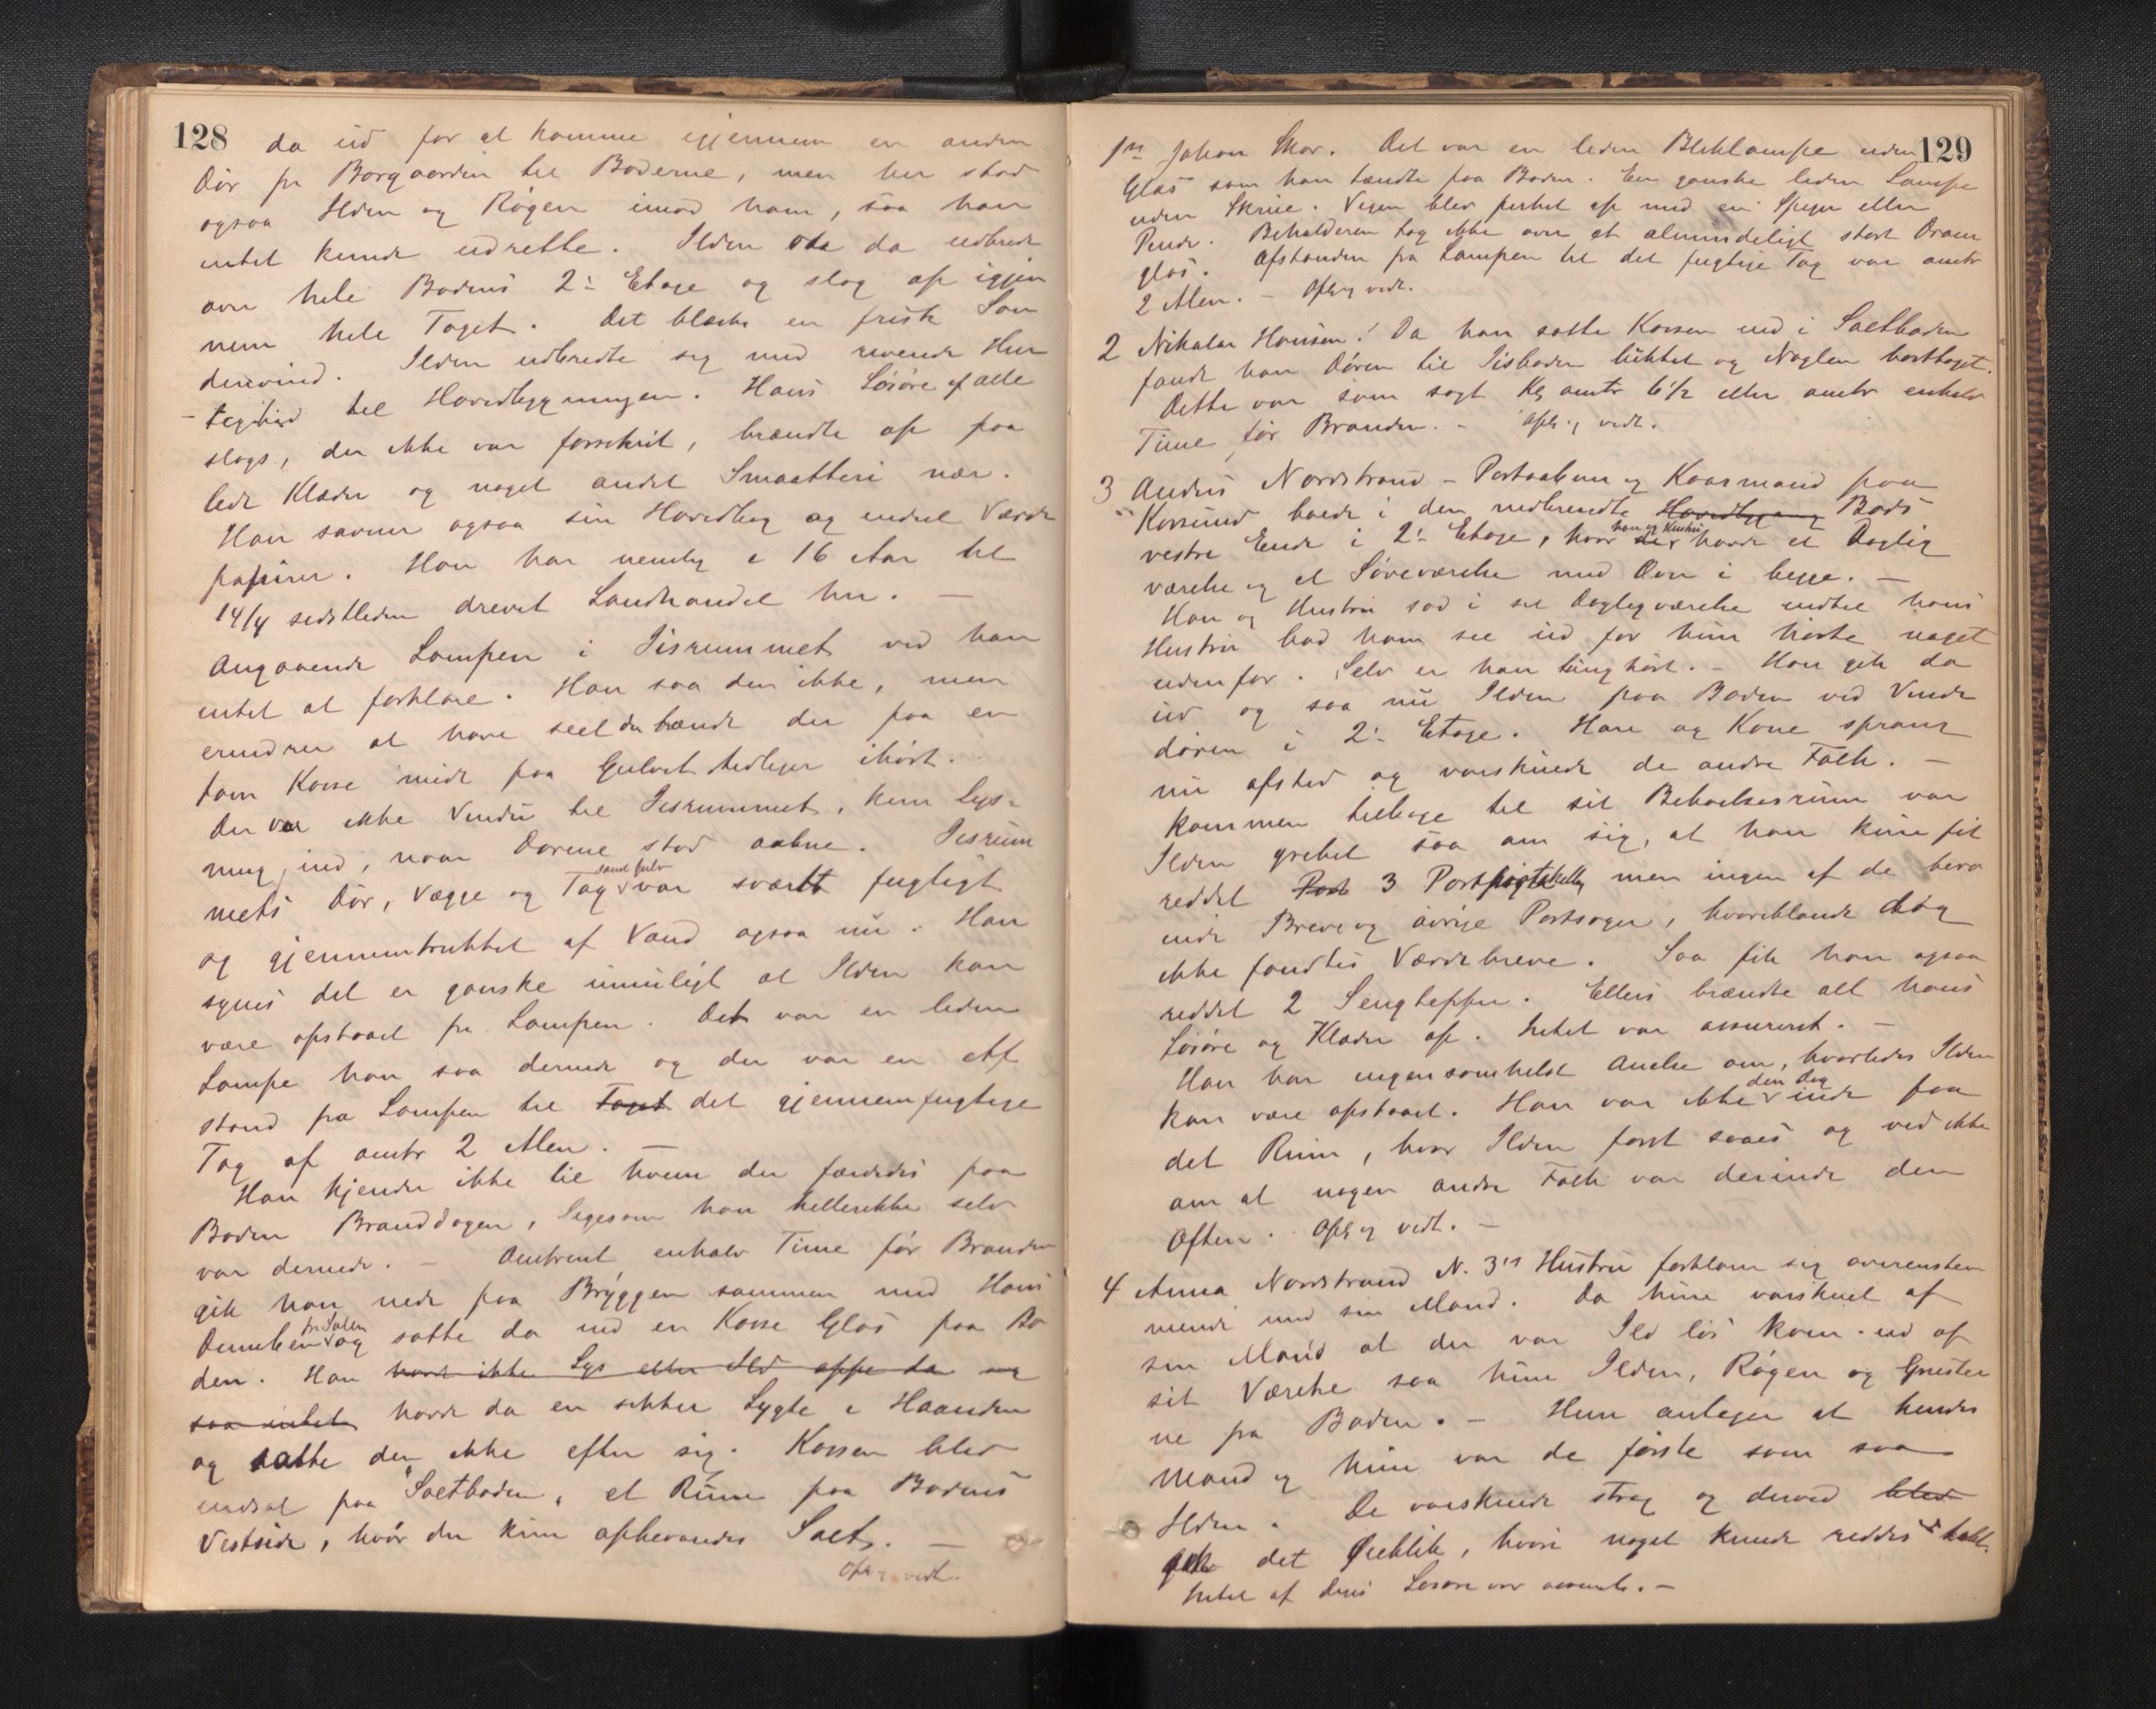 128
da ud for at komme igjennem en anden
Dør fra Borgaarden til Boderne, men her stod
ogsaa Ilden og Røgen imod ham, saa han
intet kunde udrette. Ilden da udbredt
over hele Bodens 2: Etage og slog op igjen
nem hele Taget. Det blæste en frisk Søn
denvind. Ilden udbredte sig med rivende Hur
tighed til Hovedbygningen. Hans Løsøre af alle
slags, der ikke var forsikrit, brændte op paa
lidt Klæder og noget andet Smaatteri nær.
Han savner ogsaa sin Hovedbog og endel Værdi
papirer. Han har nemlig i 16 Aar til
14/4 sidstleden drevet Landhandel her. —
Angaaende Lampen i Iisrummet ved han
intet at forklare. Han saa den ikke, men
erindrer at have seet den tændt der paa en
tom Kasse midt paa Gulvet tidligere ihøst.
Der var ikke Vindu til Iisrummet, kun lys-
ning ind, naar Dørene stod aabne. Iisrum
mets Dør, Vægge og Tag samt Gulv var svært fugtigt
og gjennemtrukket af Vand ogsaa nu. Han
synes det er ganske umuligt at Ilden kan
være opstaaet fra Lampen. Det var en liden
Lampe han saa dernede og der var en Af
stand fra Lampen til Taget det gjennemfugtige
Tag af omtr 2 Alen. —
Han kjender ikke til hvem der færdedes paa
Boden Branddagen, ligesom han hellerikke selv
var dernede. — Omtrent enhalv Time før Branden
gik han ned paa Bryggen sammen med Hans
og satte da ind en Kasse Glas paa Bo
den. Han havde ikke Lys eller Ild oppe da og
saa intet havde da en sikker Lygte i Haanden
og satte den ikke efter sig. Kassen blev
indsat paa "Saltboden, et Rum paa Bodens
Vestside, hvor der kun opbevaredes Salt. —
Opl. og vedt.
129
1ns Johan Skor. Det var en liden Bliklampe uden
Glas som han tændte paa Boden. En ganske liden Lampe
uden Skrue. Vegen blev pirket op med en Spiger eller
Pinde. Beholderen tog ikke over et almindeligt stort Dram
glas. Afstanden fra Lampen til det fugtige Tag var omtr
2 Alen. — Opl og vedt.
2 Nikolai Hansen! Da han satte Kassen ind i Saltboden
fandt han Døren til Iisboden lukket og Nøglen borttaget.
Dette var som sagt Kl omtr 6 1/2 eller omtr enhalv
Time før Branden. — Opl. og vedt.
3 Anders Nordstrand — Postaabner og Kaarmand paa
Korssund boede i den nedbrændte Hovedbygning Bods
vestre Ende i 2: Etage, hvor han og Hustru havde et Daglig
værelse og et Soveværelse med Ovn i begge. —
Han og Hustru sad i sit Dagligværelse indtil hans
Hustru bad ham see ud for hun hørte noget
udenfor. Selv er han tunghørt. — Han gik da
ud og saa nu Ilden paa Boden ved Vinde
døren i 2: Etage. Han og Kone sprang
nu afsted og varskuede de andre Folk. —
Kommen tilbage til sit Beboelsesrum var
Ilden grebet saa om sig, at han kun fik
reddet Post 3 Post men ingen af de bero
ende Breve og øvrige Postsager, hvoriblandt dog
ikke fandtes Værdibreve. Saa fik han ogsaa
reddet 2 Sengtepper. Ellers brændte alt hans
Løsøre og Klæder op. Intet var assureret. —
Han har ingensomhelst Anelse om, hvorledes Ilden
kan være opstaaet. Han var ikke den dag inde paa
det Rum, hvor Ilden først saaes og ved ikke
om at nogen andre Folk var derinde den
Aften. Opl og vedt. —
4 Anna Nordstrand N. 3's Hustru forklarer sig overensstem
mende med sin Mand. Da hun varskuet af
sin Mand at der var Ild løs kom ud af
sit Værelse saa hun Ilden, Røgen og Gnister
ne fra Boden. — Hun antager at hendes
Mand og hun var de første som saa
Ilden. De varskuede strax og derved blev
gik det Øieblik, hvori noget kunde reddes tabt.
Intet af deres Løsøre var assureret. —